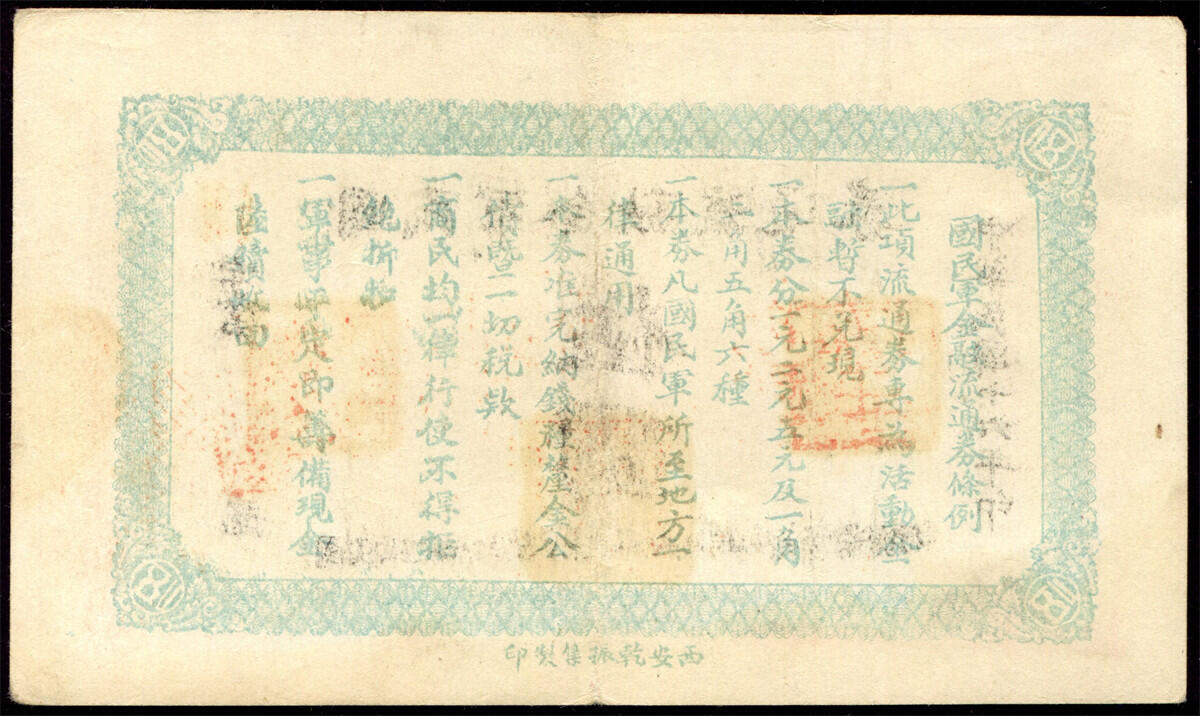 國民軍金融流通券條例
一此項流通券專為活動金
融暫不兌現
一本券分一元二元五元及一角
二角五角六種
一本券凡國民軍所至地方一
律通用
一本券准完納錢糧釐金公
債暨一切稅款
一商民均一律行使不得拒
絕折扣
一軍事平定即籌備現金
陸續收回
西安乾振集製印